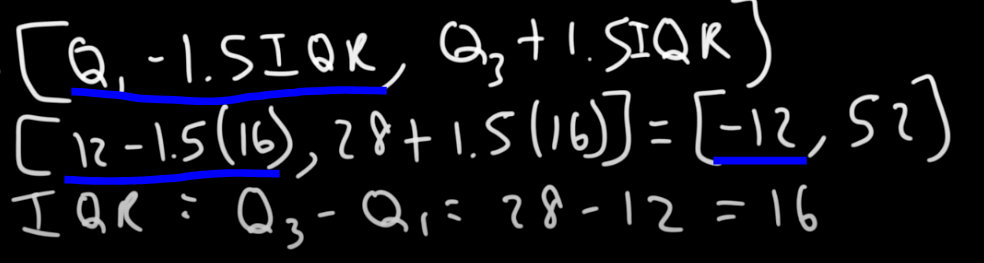 [Q₁ - 1.5IQR, Q₃ + 1.5IQR]
[12 - 1.5(16), 28 + 1.5(16)] = [-12, 52]
IQR = Q₃ - Q₁ = 28 - 12 = 16